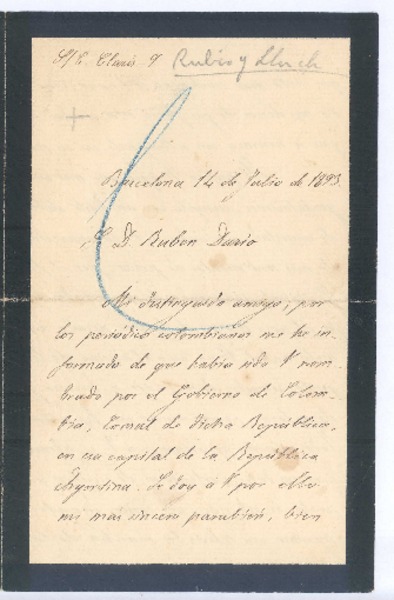 S/C Claris 9
Rubio y Lluch
Barcelona 14 de Julio de 1893
S. D. Ruben Dario
Mi distinguido amigo; por
los periódicos colombianos me he in-
formado de que habia sido V nom-
brado por el Gobierno de Colom-
bia, Consul de dicha República,
en esa capital de la República
Argentina. Le doy á V por ello
mi más sincero parabién, bien